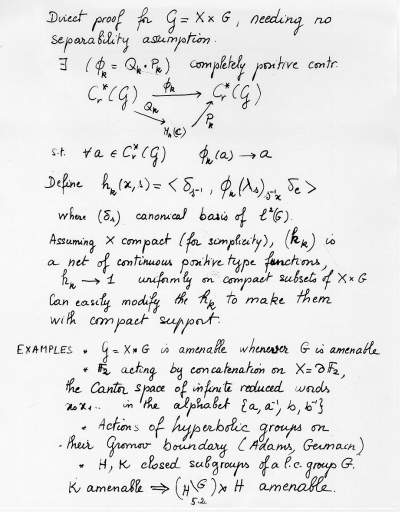 Direct proof for G = X ⋊ G, needing no
separability assumption.
∃ (ϕₖ = Qₖ · Pₖ) completely positive contr.
C*ᵣ(G) —ϕₖ→ C*ᵣ(G)
Qₖ Pₖ
Mₙ(C)
s.t. ∀a ∈ C*ᵣ(G) ϕₖ(a) → a
Define hₖ(x,s) = < δₛ₋₁, ϕₖ(λₛ)ₛ₋₁ₓ δₑ >
where (δₛ) canonical basis of ℓ²(G).
Assuming X compact (for simplicity), (hₖ) is
a net of continuous positive type functions,
hₖ → 1 uniformly on compact subsets of X × G
Can easily modify the hₖ to make them
with compact support.
EXAMPLES • G = X ⋊ G is amenable whenever G is amenable
• F₂ acting by concatenation on X = ∂F₂,
the Cantor space of infinite reduced words
x₀x₁... in the alphabet {a, a⁻¹, b, b⁻¹}
• Actions of hyperbolic groups on
their Gromov boundary (Adams, Germain)
• H, K closed subgroups of a l.c. group G.
K amenable ⟹ (H\G) ⋊ H amenable.
5.2